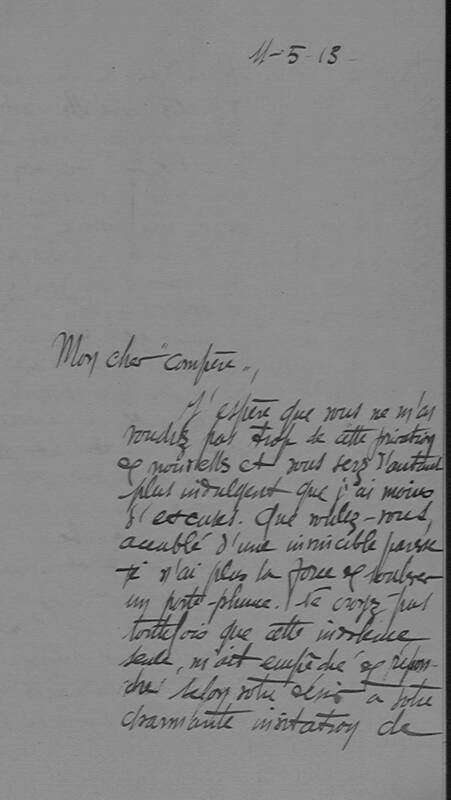 11-5-13-
Mon cher "compère",
J'espère que vous ne m'en
voudrez pas trop de cette privation
de nouvelles et vous serez d'autant
plus indulgent que j'ai moins
d'excuses. Que voulez-vous,
accablé d'une invincible paresse
je n'ai plus la force de soulever
un porte-plume. Ne croyez pas
toutefois que cette indolence
seule, m'ait empêché de répon-
dre selon votre désir à votre
charmante invitation de